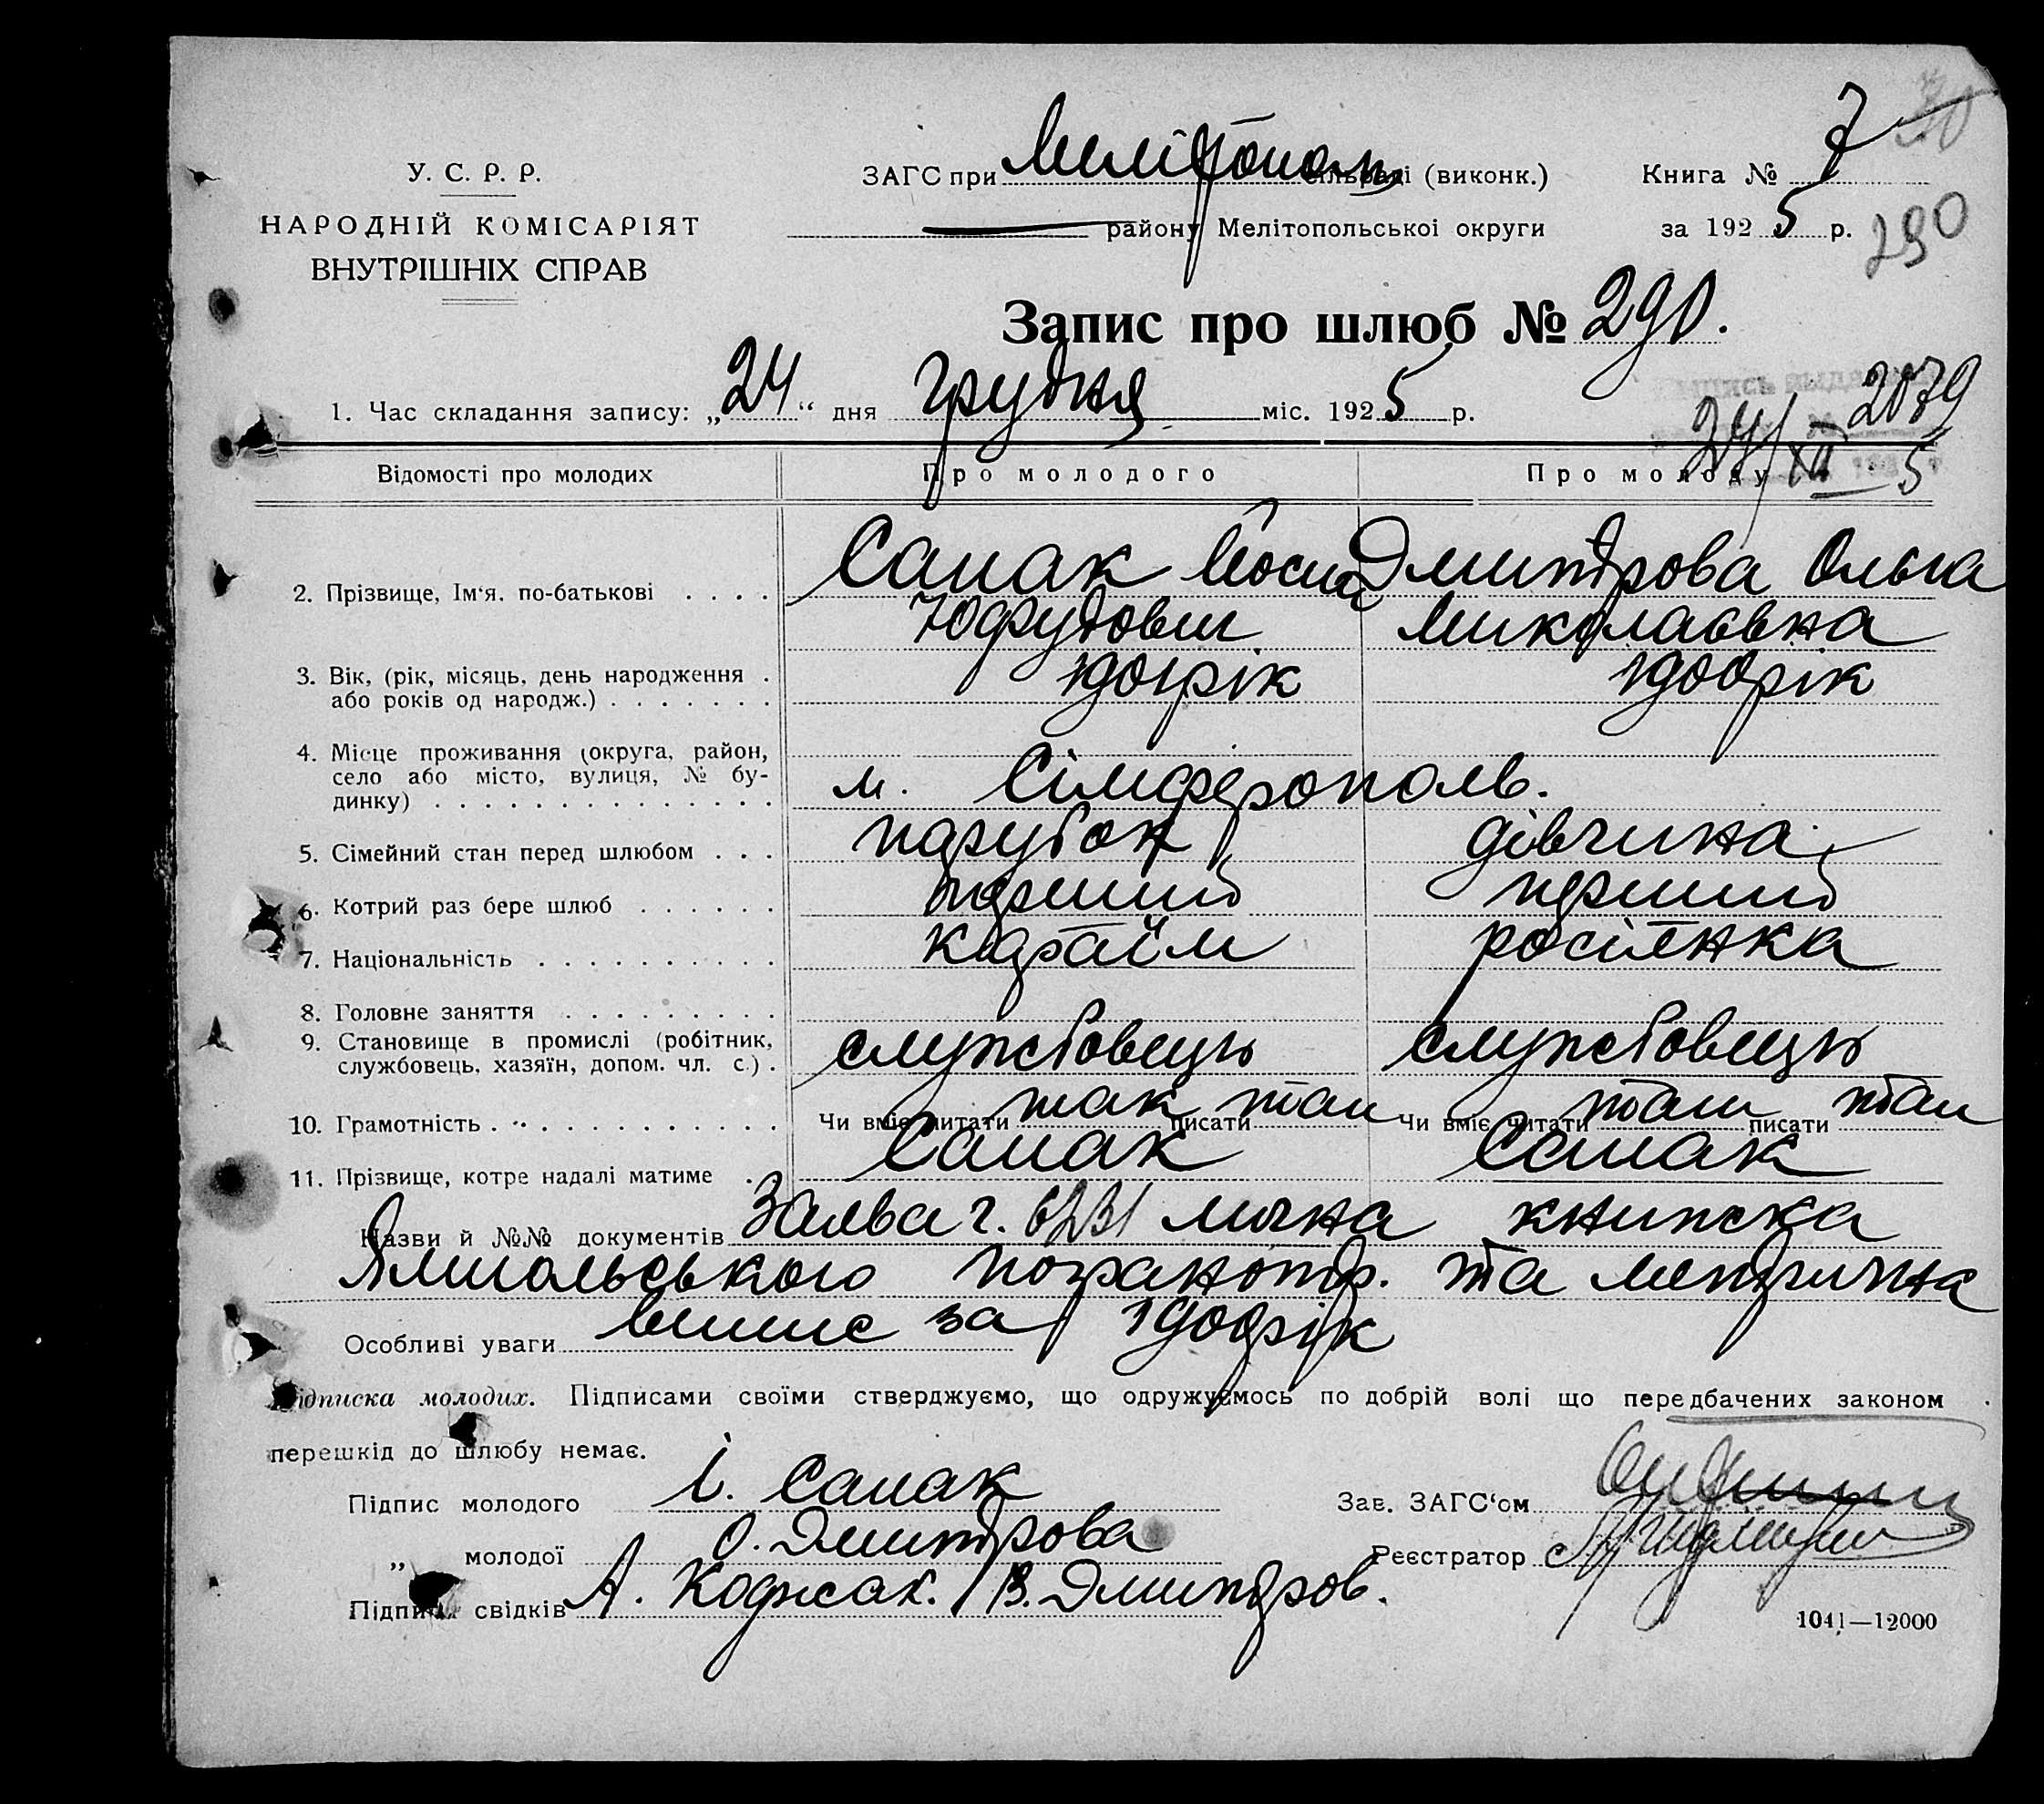 У. С. Р. Р.
НАРОДНІЙ КОМІСАРІЯТ
ВНУТРІШНІХ СПРАВ
ЗАГС при Мелітополь сільраді (виконк.)
району Мелітопольської округи
Книга № 7
за 1925 р.
290
Запис про шлюб № 290.
1. Час складання запису: „24“ дня грудня міс. 1925 р.
2079
24/XII 5
Відомості про молодих Про молодого Про молоду
2. Прізвище, Ім‘я, по-батькові . . . . Сапак Йосип Дмитрова Ольга
Юфудович Миколаєвна
3. Вік, (рік, місяць, день народження . 1901рік 1900рік
або років од народж.) . . . . . . .
4. Місце проживання (округа, район,
село або місто, вулиця, № бу-
динку) . . . . . . . . . . . . . . м. Сімферополь.
5. Сімейний стан перед шлюбом . . . парубок дівчина
6. Котрий раз бере шлюб . . . . . . перший перший
7. Національність . . . . . . . . . . караїм росіянка
8. Головне заняття . . . . . . . . .
9. Становище в промислі (робітник,
службовець, хазяїн, допом. чл. с.) . службовець службовець
10. Грамотність . . . . . . . . . . . . Чи вміє читати так писати так Чи вміє читати так писати так
11. Прізвище, котре надалі матиме . Сапак Сапак
Назви й №№ документів Заява ч. 6231 лична книжка
та метрична
Особливі уваги випис за 1900рік
Підписка молодих. Підписами своїми стверджуємо, що одружуємось по добрій волі що передбачених законом
перешкід до шлюбу немає.
Підпис молодого І. Сапак
Зав. ЗАГС‘ом
„ молодої О. Дмитрова
Реєстратор
Підпис свідків А. Коджак. / В. Дмитров.
1041—12000